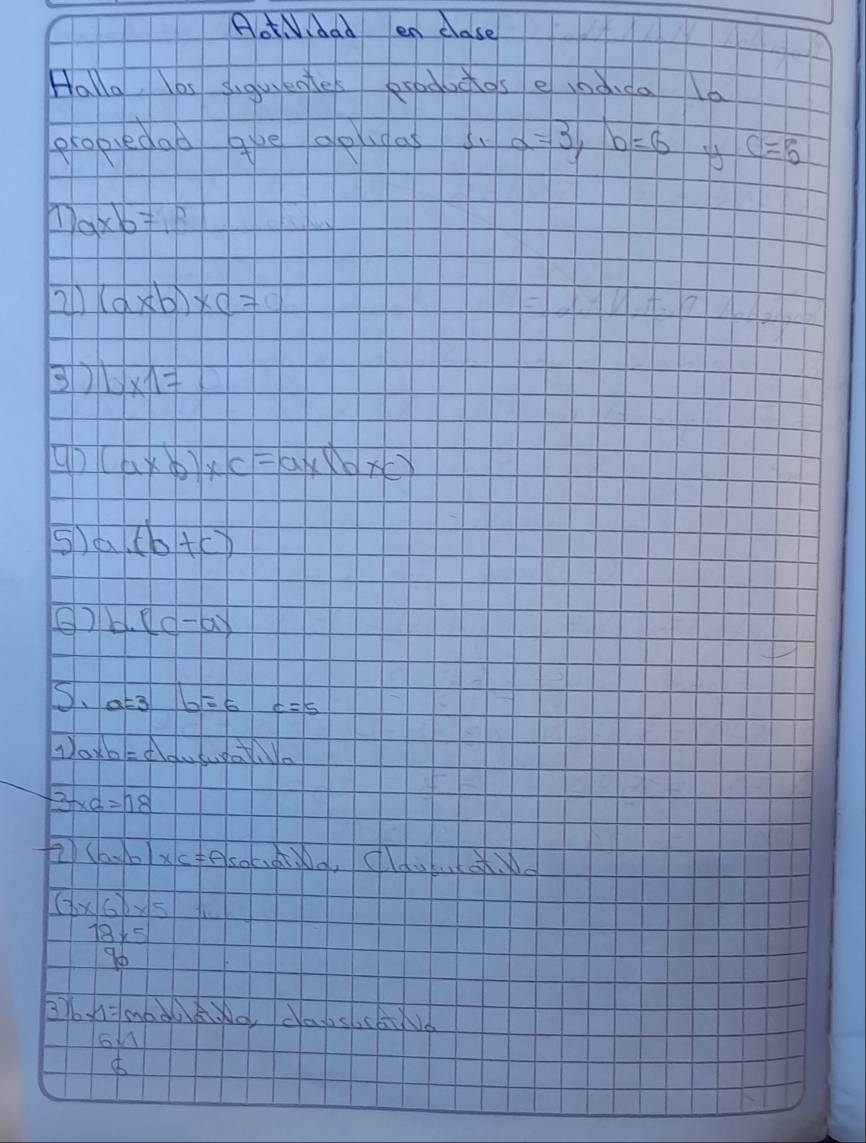 Actividad en clase
Halla los siguientes productos e indica la
propiedad que aplicas si a=3, b=6 y c=5
1) axb=
2) (axb)xc=
3) bx1=
4) (axb)xc=ax(bxc)
5) a.(b+c)
6) b.(c-a)
S. a=3 b=6 c=5
1) axb=clausurativa
3x6=18
2) (axb)xc=Asociativa, Clausurativa
(3x6)x5
18x5
90
3) bx1=modulativa, clausurativa
6x1
6